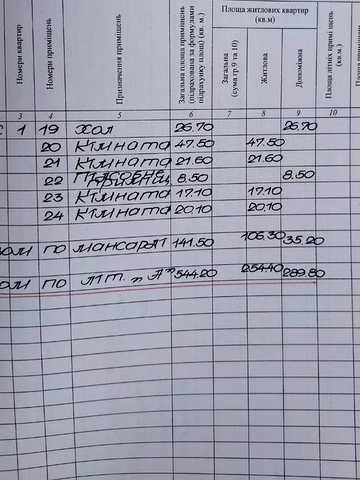 Номери квартир
Номери приміщень
Призначення приміщень
Загальна площа приміщень (підрахована за формулами підрахунку площ) (кв. м.)
Площа житлових квартир (кв.м)
Загальна (сума гр.9 та 10)
Житлова
Допоміжна
Площа літніх примі щень (кв.м.)
3 4 5 6 7 8 9 10
1 19 хол 26.70 26.70
20 кімната 47.50 47.50
21 кімната 21.60 21.60
22 підсобне приміщ 8.50 8.50
23 кімната 17.10 17.10
24 кімната 20.10 20.10
по мансарді 141.50 106.30 35.20
по літ. „А" 544.20 254.40 289.80